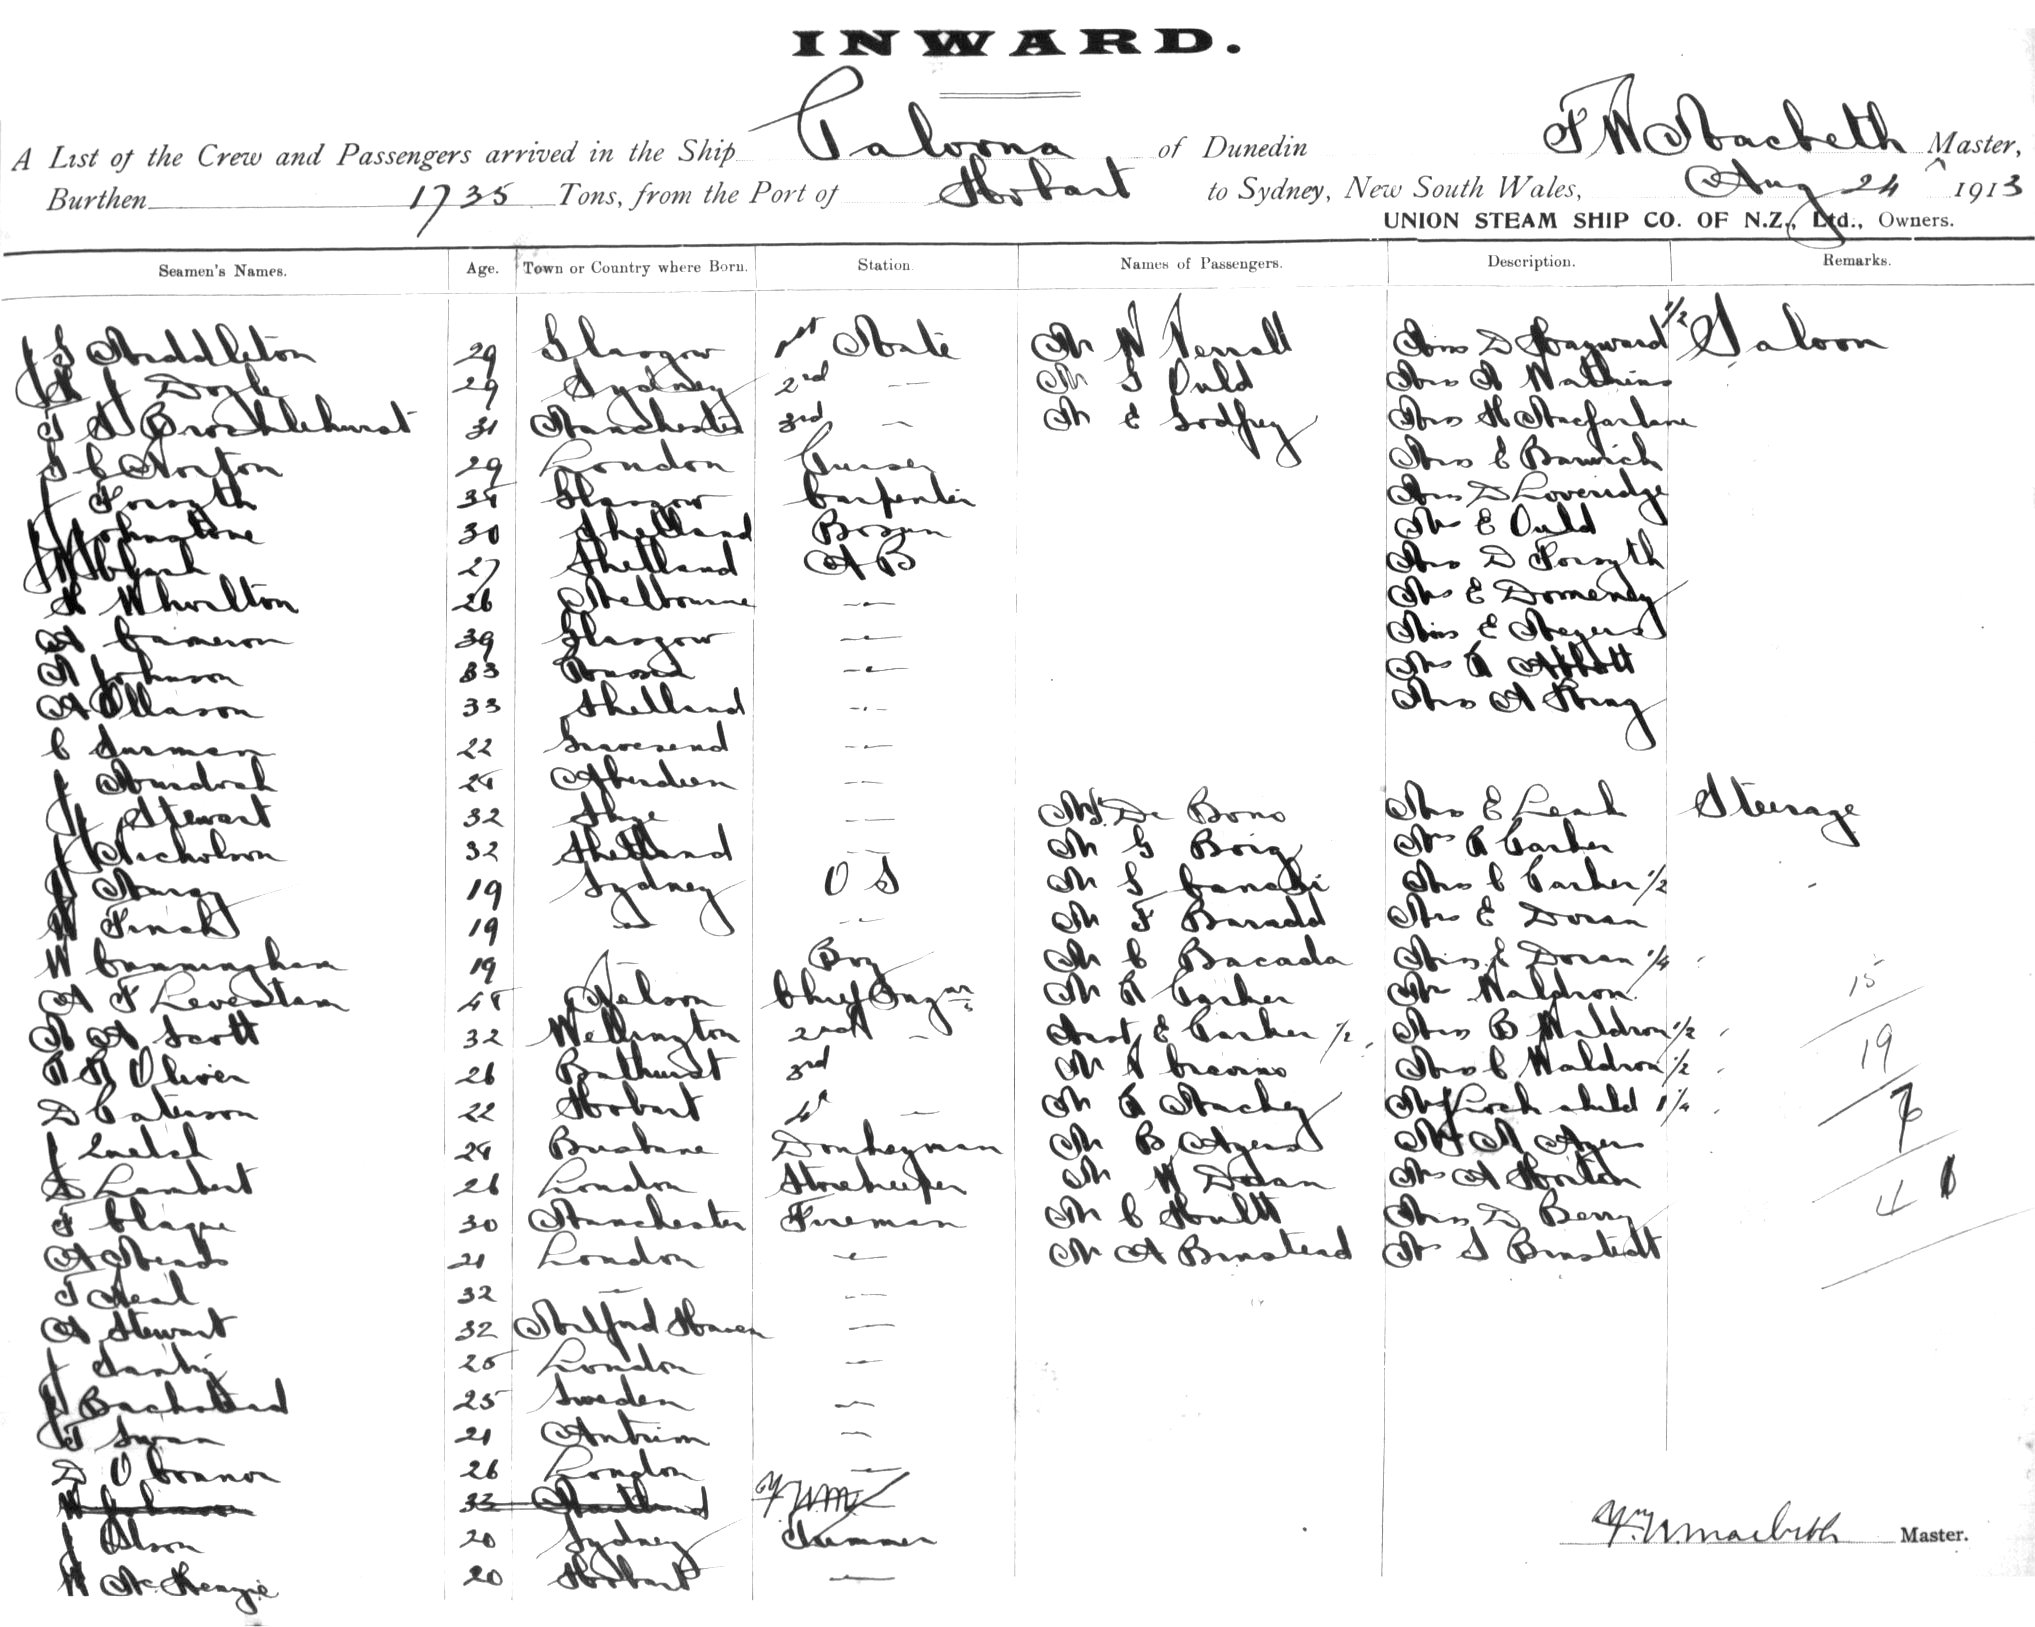 INWARD.
A List of the Crew and Passengers arrived in the Ship Paloona of Dunedin F W Macbeth Master,
Burthen 1735 Tons, from the Port of Hobart to Sydney, New South Wales, Aug 24 1913
UNION STEAM SHIP CO. OF N.Z., Ltd., Owners.
Seamen's Names. Age. Town or Country where Born. Station. Names of Passengers. Description. Remarks.
J S Middleton 29 Glasgow 1st Mate Mr W Verrall Miss D Hayward 1/2 Saloon
Doyle 29 Sydney 2nd — Mr S Ould Mrs A Watkins
T H Brocklehurst 31 Manchester 3rd — Mr E Godfrey Mrs H Macfarlane
S C Norton 29 London Purser Mrs E Barwick
J Forsyth 34 Glasgow Carpenter Miss D Loveridge
J Johnstone 30 Shetland Bosun Mrs E Ould
27 Shetland A B Mrs D Forsyth
Whorlton 26 Melbourne — Mrs E Domeney
A Cameron 39 Glasgow — Miss E Meyers
A Johnson 33 Russia — Mrs A Abbott
A Ollason 33 Shetland — Mrs A King
C Surman 22 Gravesend —
J Murdoch 24 Aberdeen —
J Stewart 32 Skye — Mr De Bono Mrs E Leak Steerage
J Nicholson 32 Shetland — Mr G Borg Mrs A Carker
J 19 Sydney O S Mr S Miss C Carker 1/2
W Finch 19 — Mr F Mrs E Doran
W Cunningham 19 Boy Mr C Bacada Miss E Doran 1/4 15
A F Levestam 45 Nelson Chief Engnr Mr A Carker Mrs Waldron
A A Scott 32 Wellington 2nd — Mast E Carker 1/2 Miss B Waldron 1/2 19
A R Oliver 26 Bathurst 3rd Mr Miss C Waldron 1/2
D Paterson 22 Hobart 4th — Mr A Mackey child 1 1/4 7
J 24 Brisbane Donkeyman Mr B Ayers Mrs A Ayers
D Lambert 26 London Storekeeper Mr W Doran Mrs A Horton 4
F Clague 30 Manchester Fireman Mr C Hultt Miss D Berry
A Meads 21 London — Mr A Binstead Mrs S Binstedt
T Neal 32 — —
A Stewart 32 Milford Haven —
J 25 London —
J 25 Sweden —
T Swan 21 Antrim —
D O'Connor 26 London —
W Johnson 33
J Olson 20 Sydney Trimmer
W McKenzie 20 Hobart —
Macbeth Master.